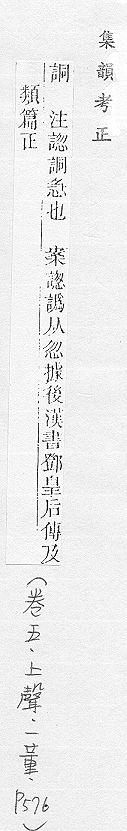 集韻考正
詷　注認詷忿也　案認譌从忽據後漢書鄧皇后傳及
類篇正
（卷五．上聲．一董．P576）